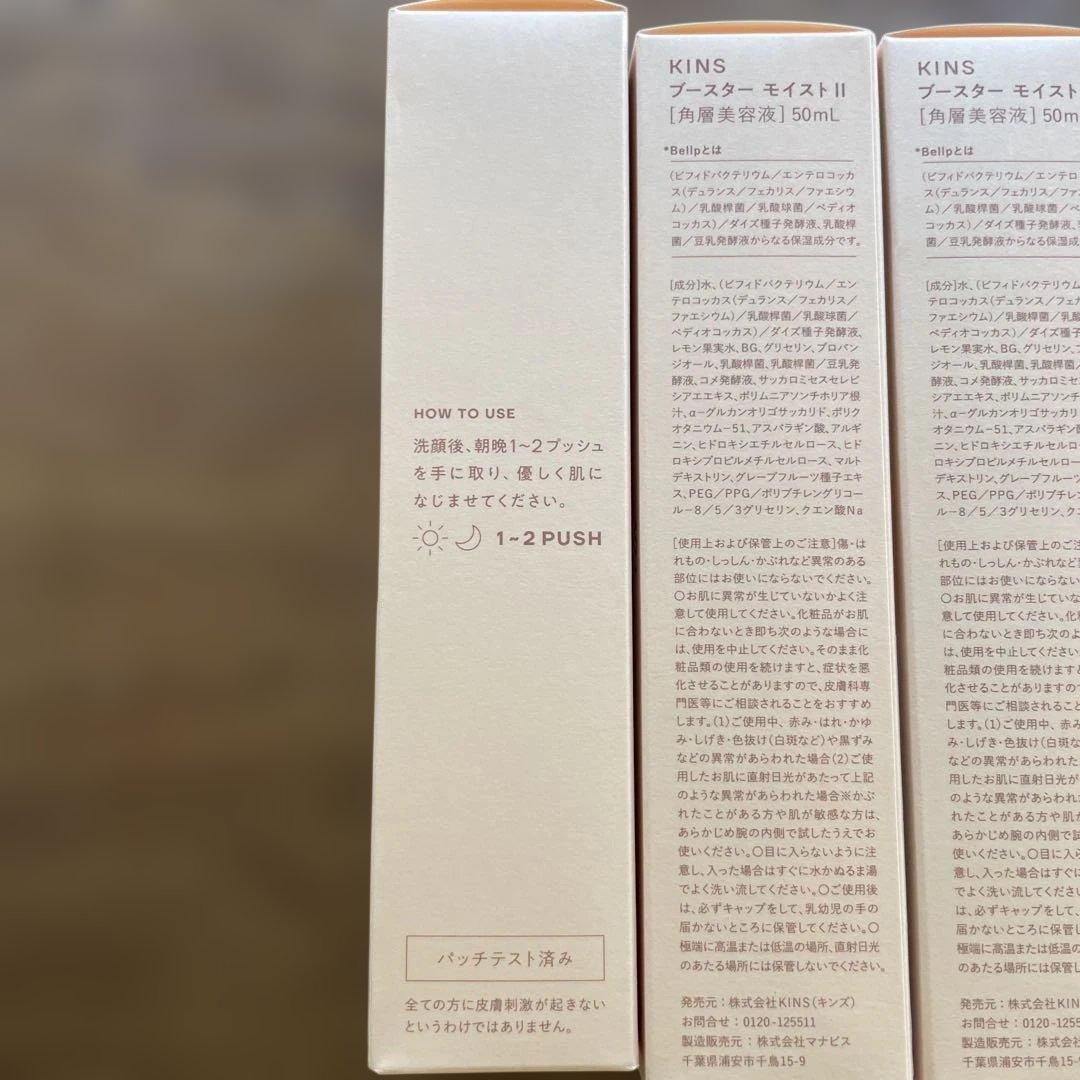 HOW TO USE
洗顔後、朝晩1~2プッシュ
を手に取り、優しく肌に
なじませてください。
1~2 PUSH
パッチテスト済み
全ての方に皮膚刺激が起きない
というわけではありません。
KINS
ブースター モイストII
[角層美容液] 50mL
*Bellpとは
(ビフィドバクテリウム/エンテロコッカ
ス(デュランス/フェカリス/ファエシウ
ム)/乳酸桿菌/乳酸球菌/ペディオ
コッカス)/ダイズ種子発酵液、乳酸桿
菌/豆乳発酵液からなる保湿成分です。
[成分]水、(ビフィドバクテリウム/エン
テロコッカス(デュランス/フェカリス/
ファエシウム)/乳酸桿菌/乳酸球菌/
ペディオコッカス)/ダイズ種子発酵液、
レモン果実水、BG、グリセリン、プロパン
ジオール、乳酸桿菌、乳酸桿菌/豆乳発
酵液、コメ発酵液、サッカロミセスセレビ
シアエエキス、ポリムニアソンチホリア根
汁、α-グルカンオリゴサッカリド、ポリク
オタニウム-51、アスパラギン酸、アルギ
ニン、ヒドロキシエチルセルロース、ヒド
ロキシプロピルメチルセルロース、マルト
デキストリン、グレープフルーツ種子エキ
ス、PEG/PPG/ポリブチレングリコー
ル-8/5/3グリセリン、クエン酸Na
[使用上および保管上のご注意]傷・は
れもの・しっしん・かぶれなど異常のある
部位にはお使いにならないでください。
○お肌に異常が生じていないかよく注
意して使用してください。化粧品がお肌
に合わないとき即ち次のような場合に
は、使用を中止してください。そのまま化
粧品類の使用を続けますと、症状を悪
化させることがありますので、皮膚科専
門医等にご相談されることをおすすめ
します。(1)ご使用中、赤み・はれ・かゆ
み・しげき・色抜け(白斑など)や黒ずみ
などの異常があらわれた場合(2)ご使
用したお肌に直射日光があたって上記
のような異常があらわれた場合※かぶ
れたことがある方や肌が敏感な方は、
あらかじめ腕の内側で試したうえでお
使いください。○目に入らないように注
意し、入った場合はすぐに水かぬるま湯
でよく洗い流してください。○ご使用後
は、必ずキャップをして、乳幼児の手の
届かないところに保管してください。○
極端に高温または低温の場所、直射日光
のあたる場所には保管しないでください。
発売元：株式会社KINS(キンズ)
お問合せ：0120-125511
製造販売元：株式会社マナビス
千葉県浦安市千鳥15-9
KINS
ブースター モイスト
[角層美容液] 50m
*Bellpとは
(ビフィドバクテリウム/エンテロ
ス(デュランス/フェカリス/ファ
ム)/乳酸桿菌/乳酸球菌/ペ
コッカス)/ダイズ種子発酵液、
菌/豆乳発酵液からなる保湿成
[成分]水、(ビフィドバクテリウム
テロコッカス(デュランス/フェカ
ファエシウム)/乳酸桿菌/乳酸
ペディオコッカス)/ダイズ種子
レモン果実水、BG、グリセリン、
ジオール、乳酸桿菌、乳酸桿菌/
酵液、コメ発酵液、サッカロミセス
シアエエキス、ポリムニアソンチホ
汁、α-グルカンオリゴサッカリ
オタニウム-51、アスパラギン酸
ニン、ヒドロキシエチルセルロー
ロキシプロピルメチルセルロース
デキストリン、グレープフルーツ種
ス、PEG/PPG/ポリブチレング
ル-8/5/3グリセリン、クエ
[使用上および保管上のご注
れもの・しっしん・かぶれなど
部位にはお使いにならない
○お肌に異常が生じていな
意して使用してください。化
に合わないとき即ち次のよ
は、使用を中止してください
粧品類の使用を続けますと
化させることがありますの
門医等にご相談されること
します。(1)ご使用中、赤み
み・しげき・色抜け(白斑な
などの異常があらわれた
用したお肌に直射日光が
のような異常があらわれ
れたことがある方や肌が
あらかじめ腕の内側で試
使いください。○目に入ら
意し、入った場合はすぐに
でよく洗い流してください
は、必ずキャップをして、
届かないところに保管し
極端に高温または低温の
のあたる場所には保管し
発売元：株式会社KIN
お問合せ：0120-125
製造販売元：株式会社
千葉県浦安市千鳥15-